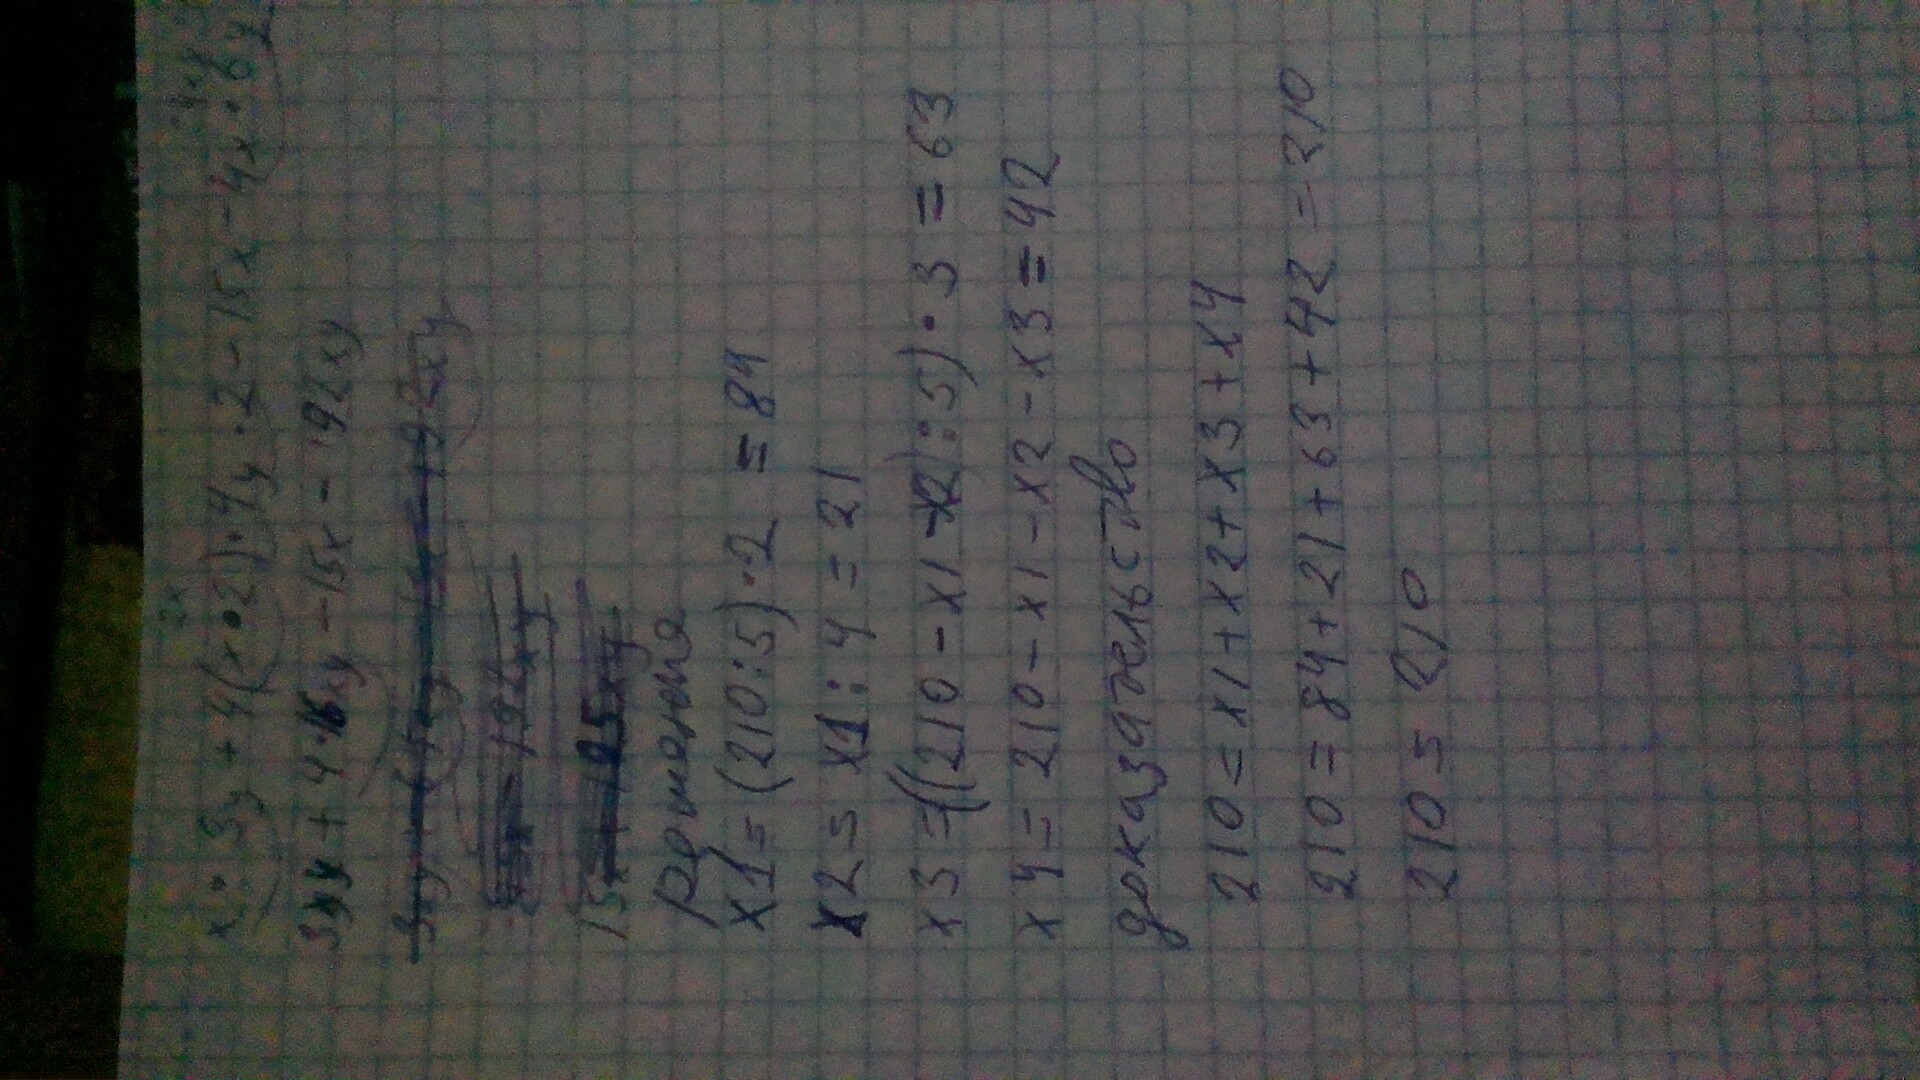 2x 24xy
x•3y+4(x•2)•4y•2-15x-4x•6y
3xy+4•16xy-15x-192xy
15x
решения
x1=(210:5)•2=84
x2=x1:4=21
x3=((210-x1-x2):5)•3=63
x4=210-x1-x2-x3=42
доказательство
210=x1+x2+x3+x4
210=84+21+63+42=210
210=210